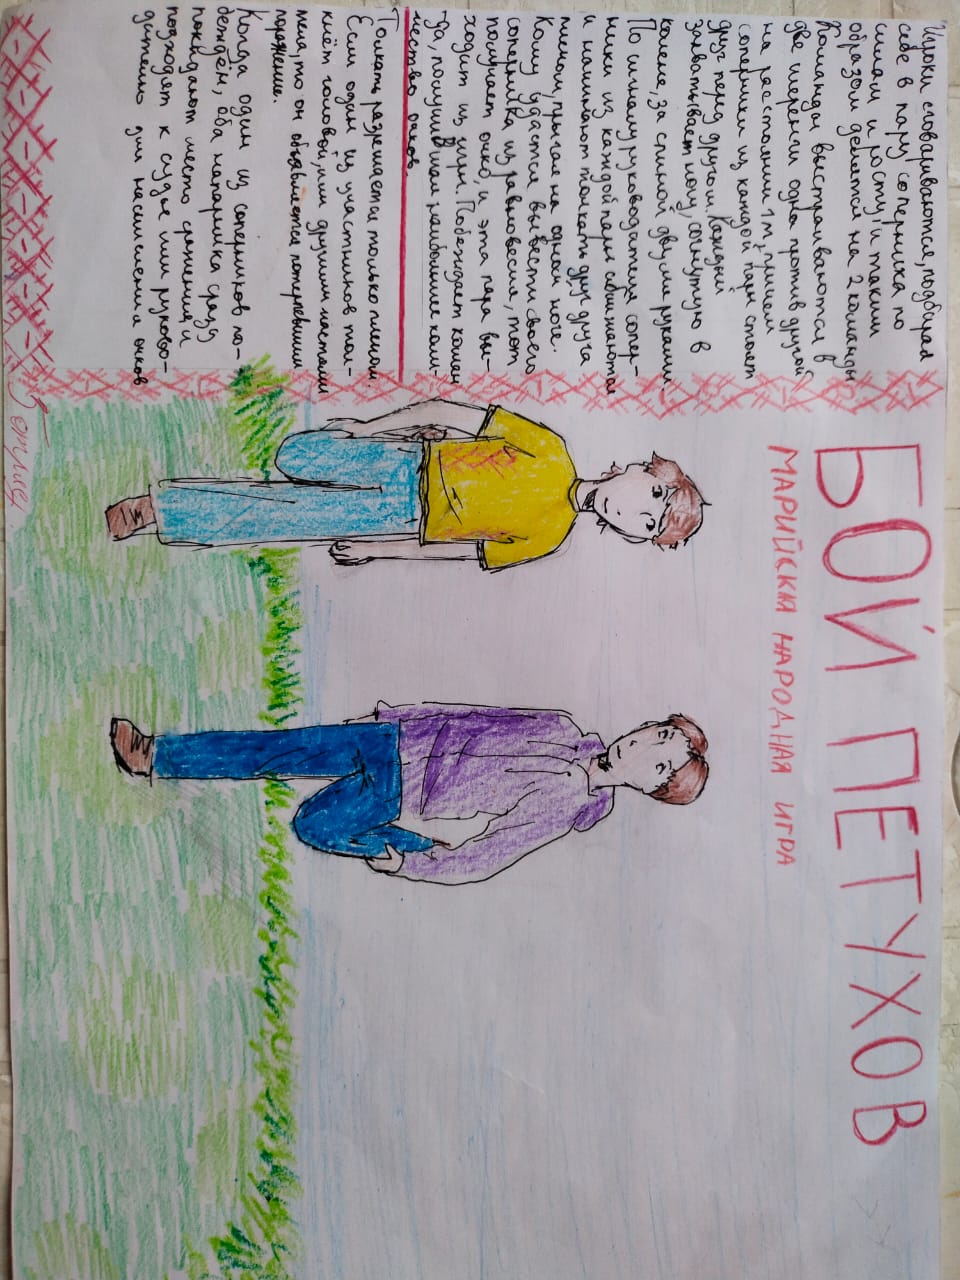 БОЙ ПЕТУХОВ
МАРИЙСКЯ НАРОДНАЯ ИГРА
Игроки сговариваются, подбирая
себе в пару соперника по
силам и росту, и таким
образом делятся на 2 команды
Команды выстраиваются в
две шеренги одна против другой
на расстоянии 1 м, причем
соперники из каждой пары стоят
друг перед другом. Каждый
захватывает ногу, согнутую в
колене, за спиной двумя руками
По сигналу руководителя сопер-
ники из каждой пары сближаются
и начинают толкать друг друга
плечом, прыгая на одной ноге.
Кому удастся вывести своего
соперника из равновесия, тот
получает очко, и эта пара вы-
ходит из игры. Побеждает коман
да, получившая наибольшее коли-
чество очков.
Толкать разрешается только плечом
Если один из участников тол-
кнёт головой, или другими частями
тела, то он объявляется потерпевшим
поражение.
Когда один из соперников по-
беждён, оба напарника сразу
покидают место сражения и
подходят к судье или руково-
дителю для начисления очков